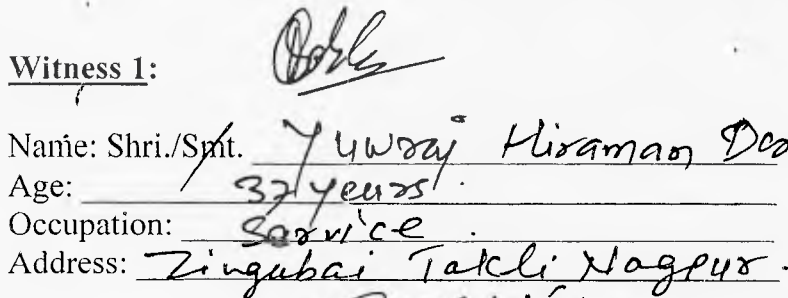 Witness 1:
Name: Shri./Smt. Yuwraj Hiraman
Age: 37 years.
Occupation: Service.
Address: Zingabai Takli Nagpur.